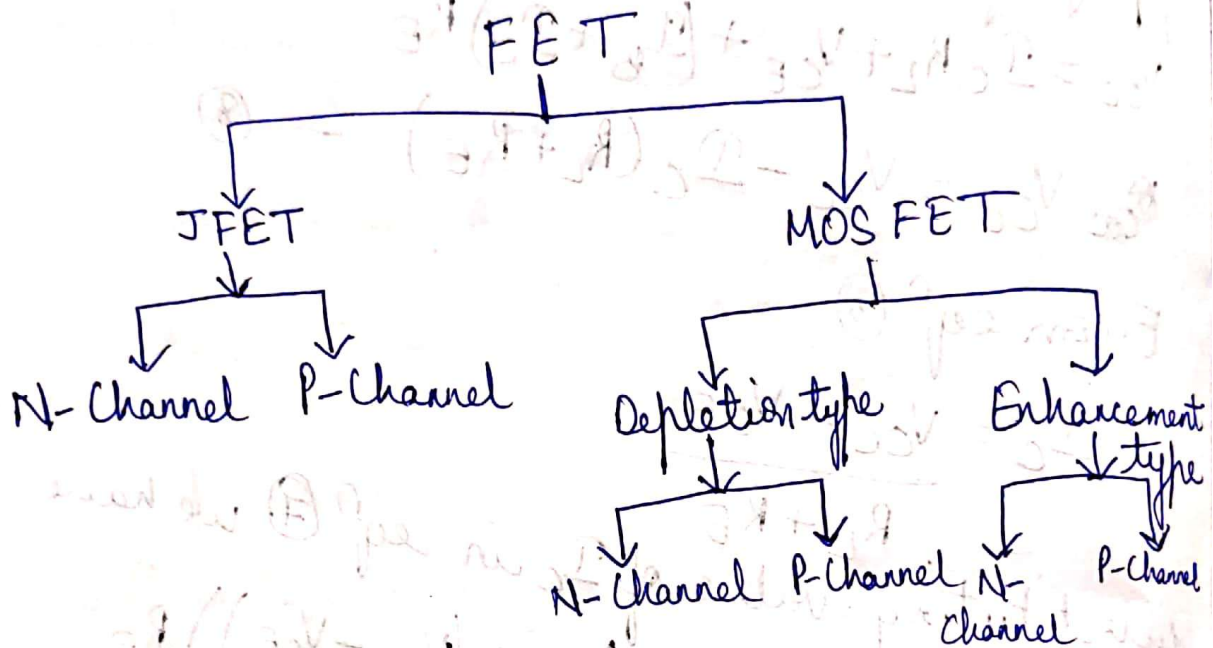 FET
JFET
MOSFET
N-Channel P-Channel
Depletion type
Enhancement
type
N-Channel P-Channel
N-
Channel
P-Channel